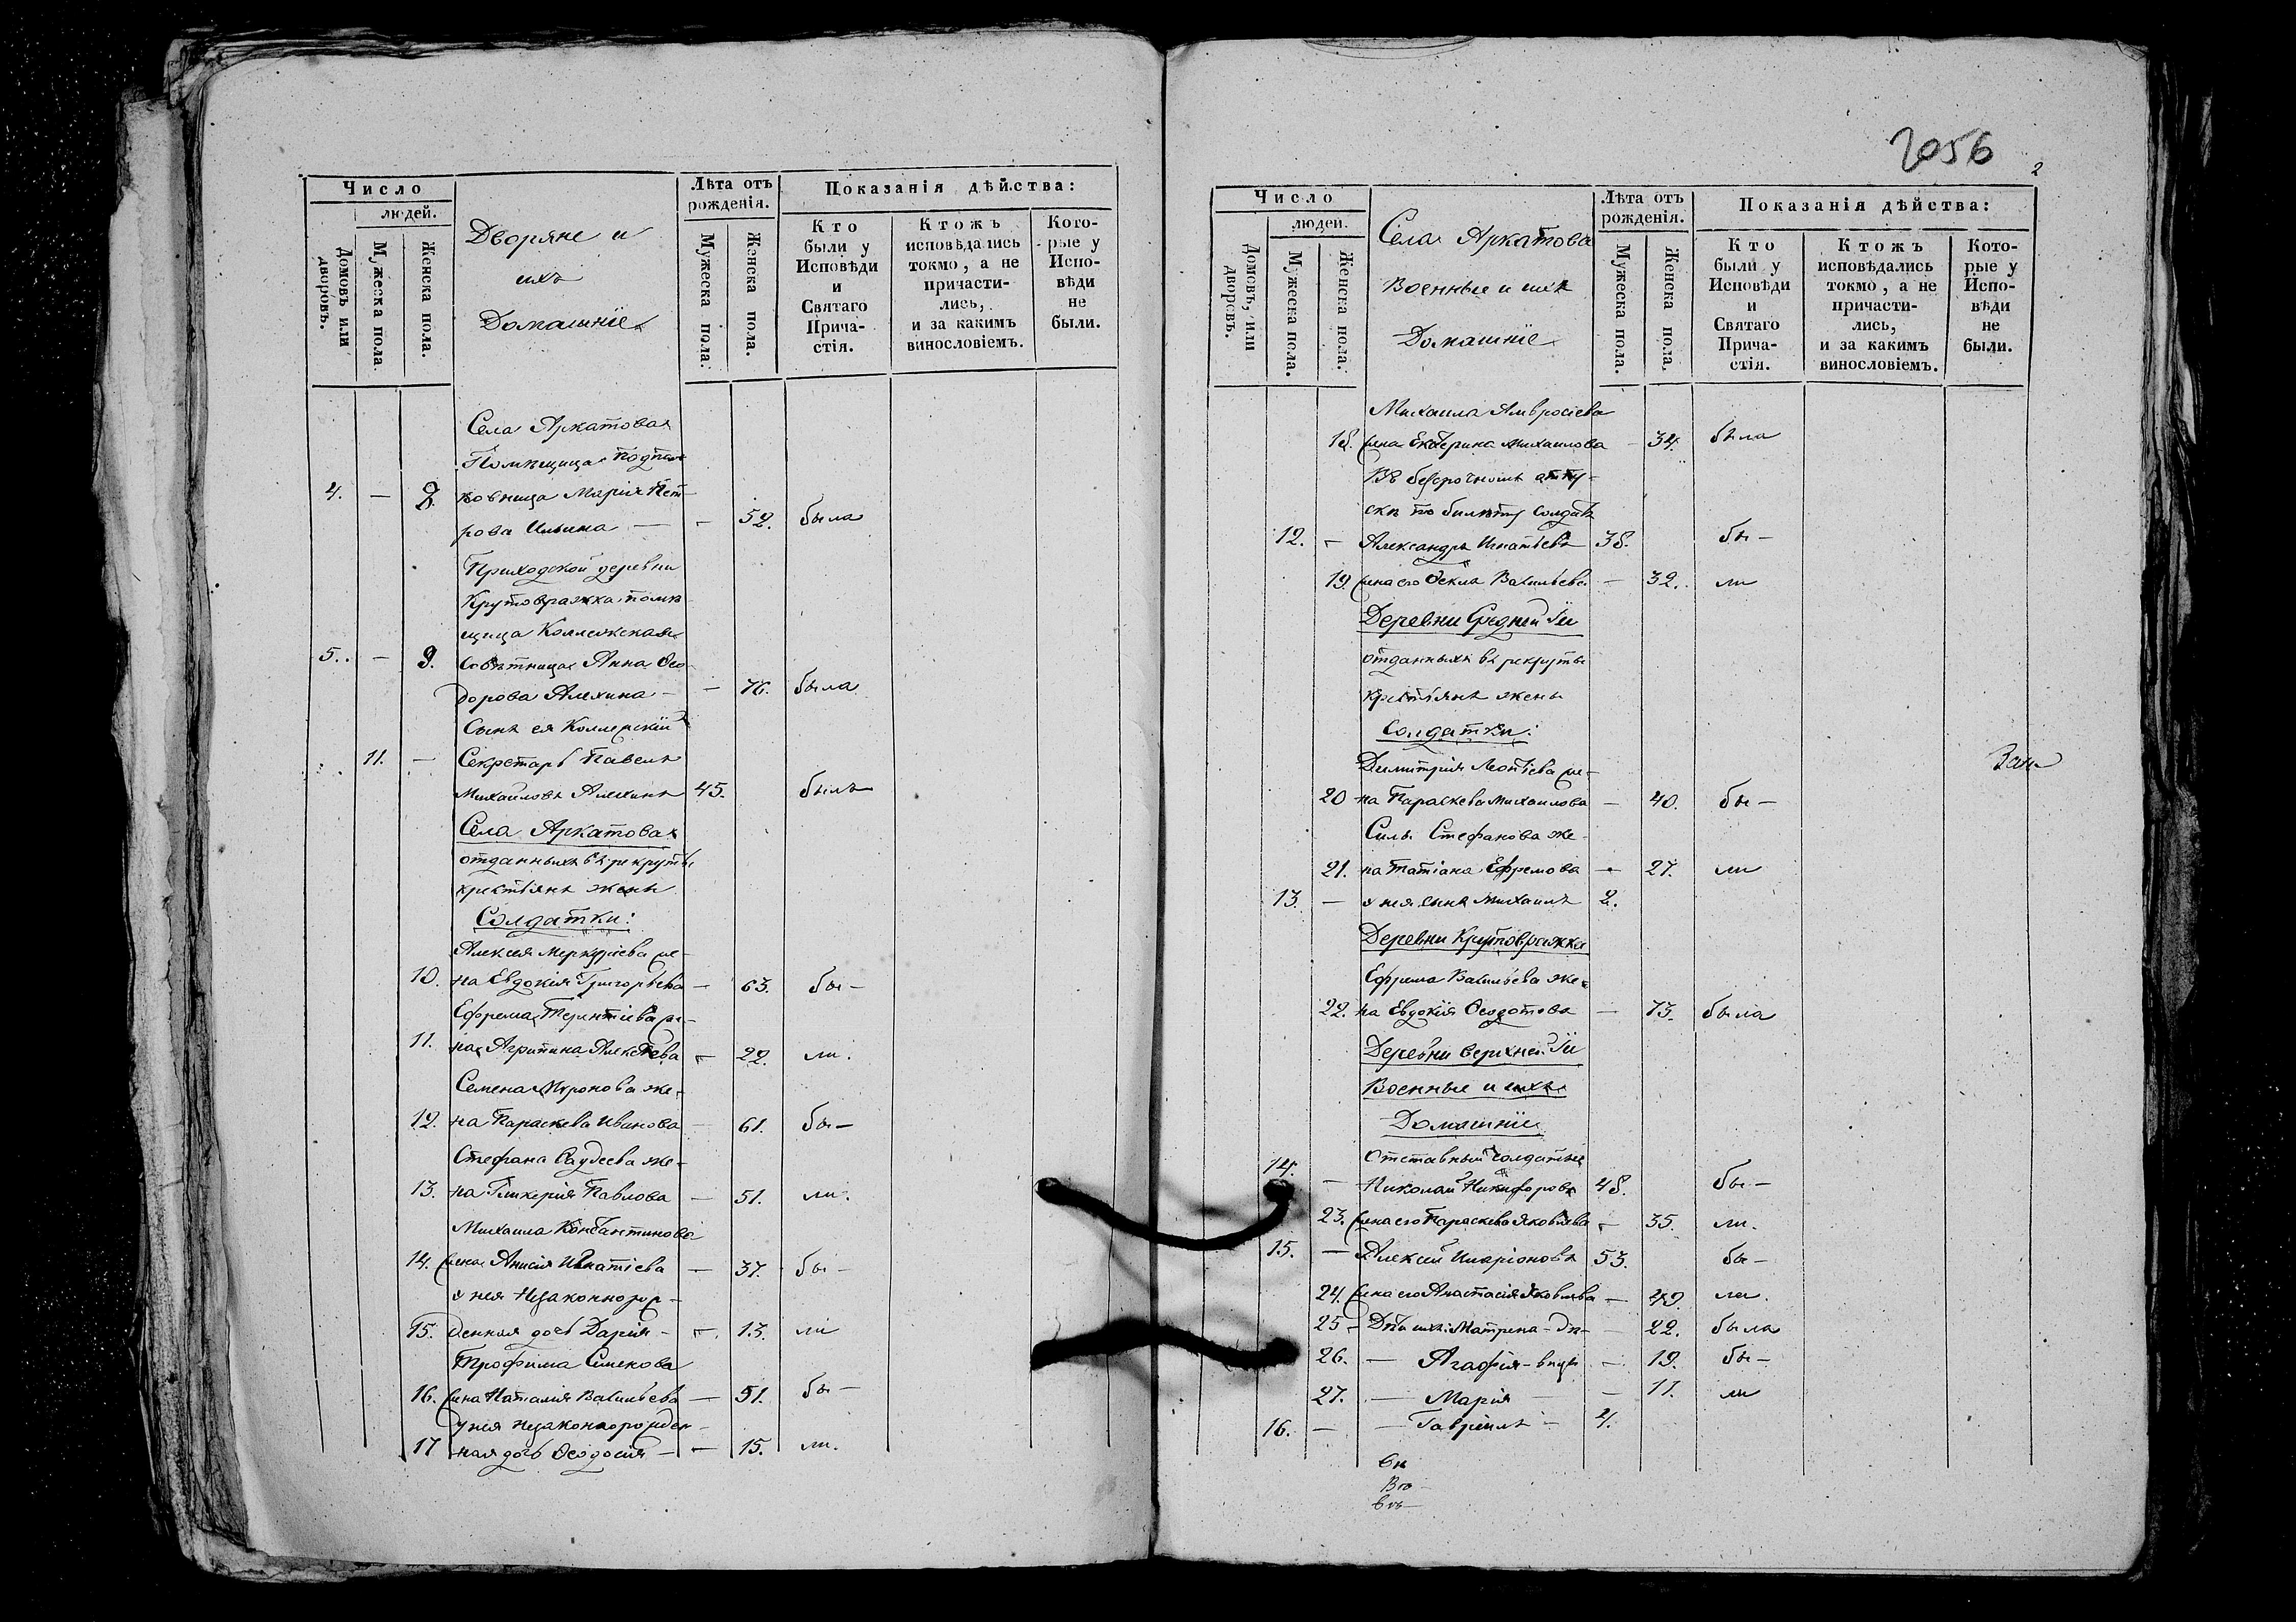 Число
людей.
Домовъ или дворовъ.
Мужеска пола
Женска пола.
Дворяне и
ихъ
Домашніе
Лѣта отъ рожденія.
Мужеска пола.
Женска пола.
Показанія дѣйства:
Кто были у Исповѣди и Святаго Прича- стія.
Ктожъ исповѣдались токмо, а не причасти- лись, и за какимъ винословіемъ.
Кото- рые у Испо- вѣди не были.
Села Аркатова
Помѣщица Подпол
4. — 8. ковница Марія Пет-
рова Ильина — — 52. была
Приходской деревни
Крутовражка помѣ
щица Коллежская
5. — 9. Совѣтница Анна Ѳео-
дорова Алехина — — 76. была
Сынъ ея Коллежскій
11. — Секретарь Павелъ
Михайловъ Алехинъ 45. былъ
Села Аркатова
отданныхъ въ рекруты
крестьянъ жены
Солдатки:
Алексея Меркуріева же-
10. на Евдокія Григорьева — 63. бы —
Ефрема Терентіева же-
11. на Агрипина Алексѣева — 22. ли.
Семена Миронова же-
12. на Параскева Иванова — 61. бы —
Стефана Садеева же-
13. на Гликерія Павлова — 51. ли.
Михаила Константинова
14. жена Анисія Игнатіева — 37. бы —
у нея незаконнорож-
15. денная дочь Дарія — — 13. ли
Трофима Симекова
16. жена Наталія Васильева — 51. бы —
у нея незаконнорожден-
17 ная дочь Ѳеодосія — — 15. ли.
2056
2
Число
людей.
Домовъ, или дворовъ.
Мужеска пола.
Женска пола.
Села Аркатова
Военные и ихъ
Домашніе
Лѣта отъ рожденія.
Мужеска пола.
Женска пола.
Показанія дѣйства:
Кто были у Исповѣди и Святаго Прича- стія.
Ктожъ исповѣдались токмо, а не причасти- лись, и за какимъ винословіемъ.
Кото- рые у Испо- вѣди не были.
Михаила Амвросіева
18. жена Екатерина Михаилова — 34. была
Въ безсрочномъ отпу-
скѣ по билету солдатъ
12. — Александръ Игнатьевъ 38. бы —
19. жена его Ѳекла Васильева — 32. ли
Деревни Средней
отданныхъ въ рекруты
крестьянъ жены
Солдатки:
Димитрія Леонтіева же-
20 на Параскева Михаилова — 40. бы —
Силы Стефанова же-
21. на Татіана Ефремова — 27. ли
13. — у нея сынъ Михаилъ 2.
Деревни Крутовражка
Ефрема Васильева же-
22. на Евдокія Ѳеодотова — 73. была
Деревни верхней
Военные и ихъ
Домашніе
Отставный солдатъ
14. — Николай Никифоровъ 48. бы —
23. жена его Параскева Яковлева — 35. ли.
15. — Алексей Иларіоновъ 53. бы —
24. жена его Анастасія Яковлева — 49. ли.
25 — Дѣти ихъ: Матрена — дѣ- — 22. была
26. — Агафія — вицы — 19. бы —
27. — Марія — — 11. ли
16. — — Гавріилъ — 4.